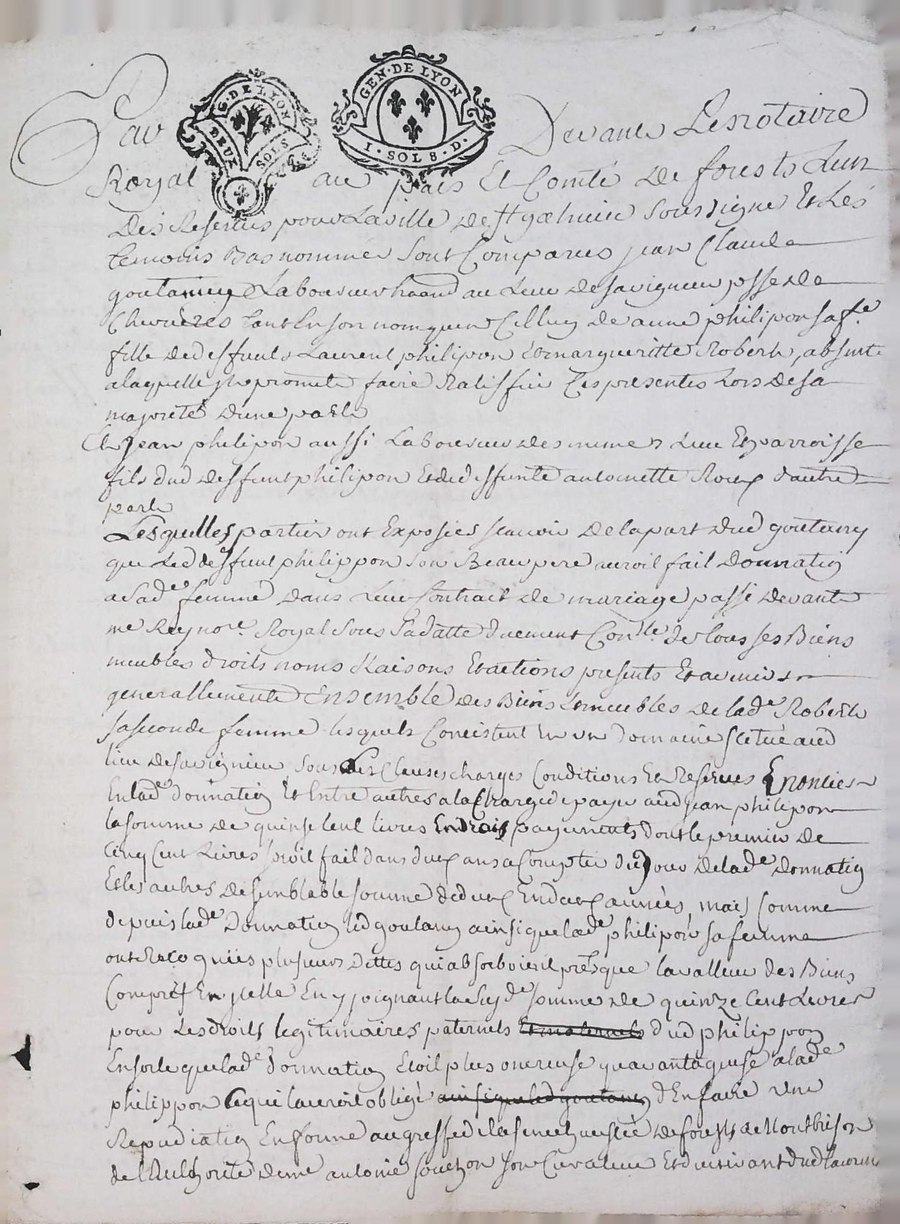 G. DE LYON
DEUX SOLS
GEN. DE LYON
1. SOL 8. D.
Par Devant Le notaire
Royal au païs Et Comté De forests Lun
Des Reserves pour La ville De St Galmier Soussigné Et Les
temoins Bas nommes Sont Comparus jean Claude
goutaney Laboureur au Lieu de savigneu psse De
Chevrieres tant En son nom que Celluy De anne philipon sa fe
fille de deffunts Laurent philipon Et margueritte Robert, absente
a laquelle il promet faire Ratiffier Les presentes Lors De sa
majorité D'une part
Et jean philipon aussi Laboureur Des mesmes Lieu Et parroisse
fils dud deffunt philipon Et de deffunte antoinette Roux d'autre
part
Lesquelles parties ont Exposées scavoir De la part Dud goutaney
que Led deffunt philippon Son Beaupere auroit fait Donnation
a Sade femme Dans Leur Contrait De mariage passé Devant
me Reynore Royal Sous Sa datte duement Conlle de tous ses Biens
meubles droits noms Raisons Et actions presents Et avenir
generallement Ensemble Des Biens Immeubles De lade Robert
sa seconde femme lesquels Consistent En un Domaine scitué aud
lieu De savigneu Sous Les Clauses charges Conditions Et Reserves Enoncées
En lade donnation Et Entre autres a la Charge de payer aud jean philipon
la somme De quinse Cent livres En trois payements dont le premier De
Cinq Cent Livres seroit fait dans deux ans a Compter du jour De lade Donnation
Et les autres De semblable somme de deux En deux années, mais Comme
depuis lade Donnation led goutaney ainsi que lade philipon sa femme
ont Recognües plusieurs Dettes qui absorboient presque la valleur des Biens
Compris En jcelle En y joignant la susde somme De quinze Cent Livres
pour Les droits legitimaires paternels Et maternels dud philippon
En sorte que lade donnation Etoit plus onereuse qu'avantageuse a lade
philippon Ce qui l'auroit obligé ainsi que led goutaney d'En faire une
Repudiation En forme au greffe de la senechaussée De forests de Montbrison
de l'authorité de me antoine souchon son Curateur Et